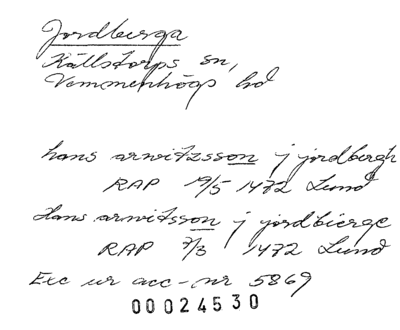 Jordberga
Källstorps sn,
Vemmenhögs hd
hans arwitzsson j jordbergh
RAP 19/5 1472 Lund
Hans arwitsson j jordbierge
RAP 7/3 1472 Lund
Exc ur acc-nr 5869
00024530